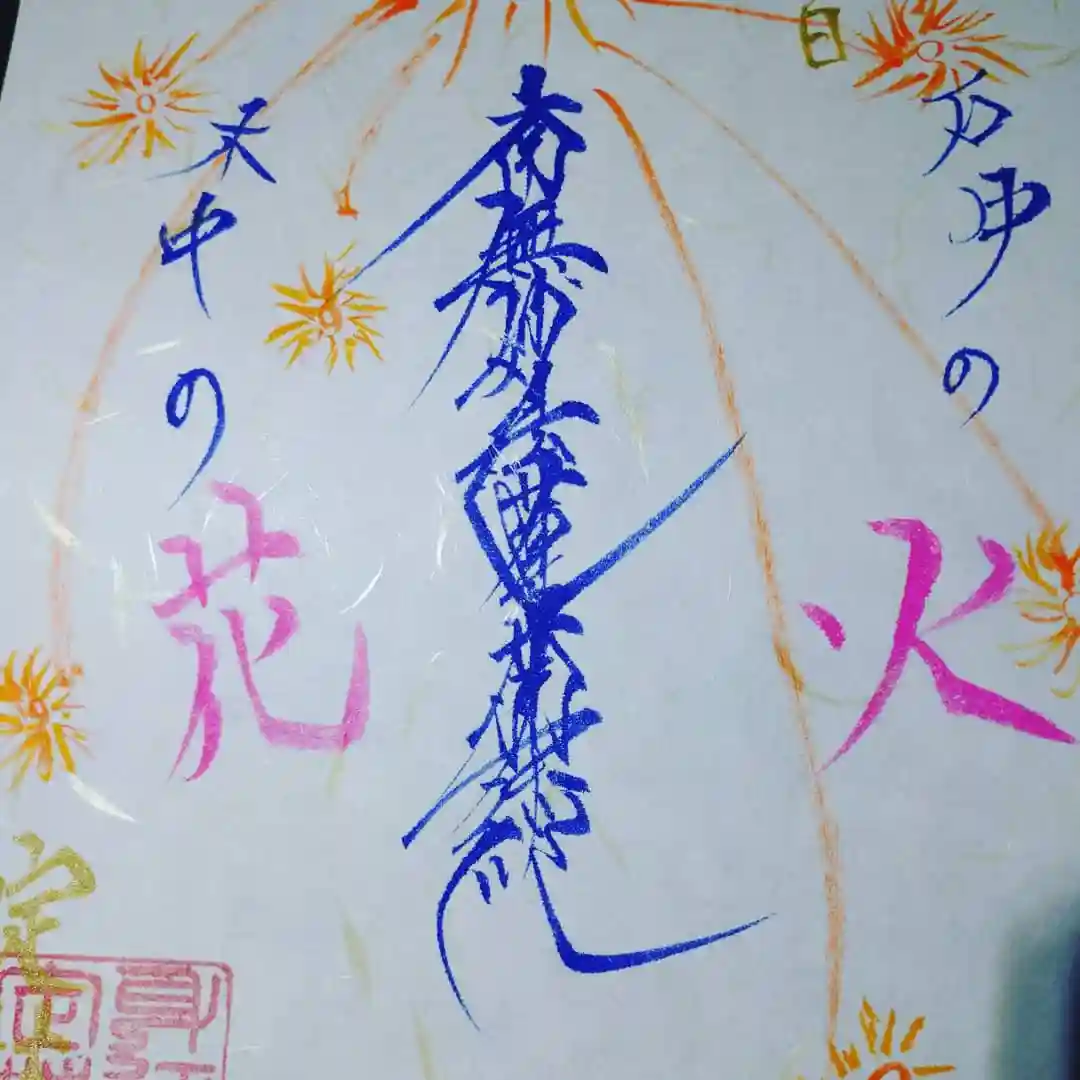 日
石中の火
南無妙法蓮華経
木中の花